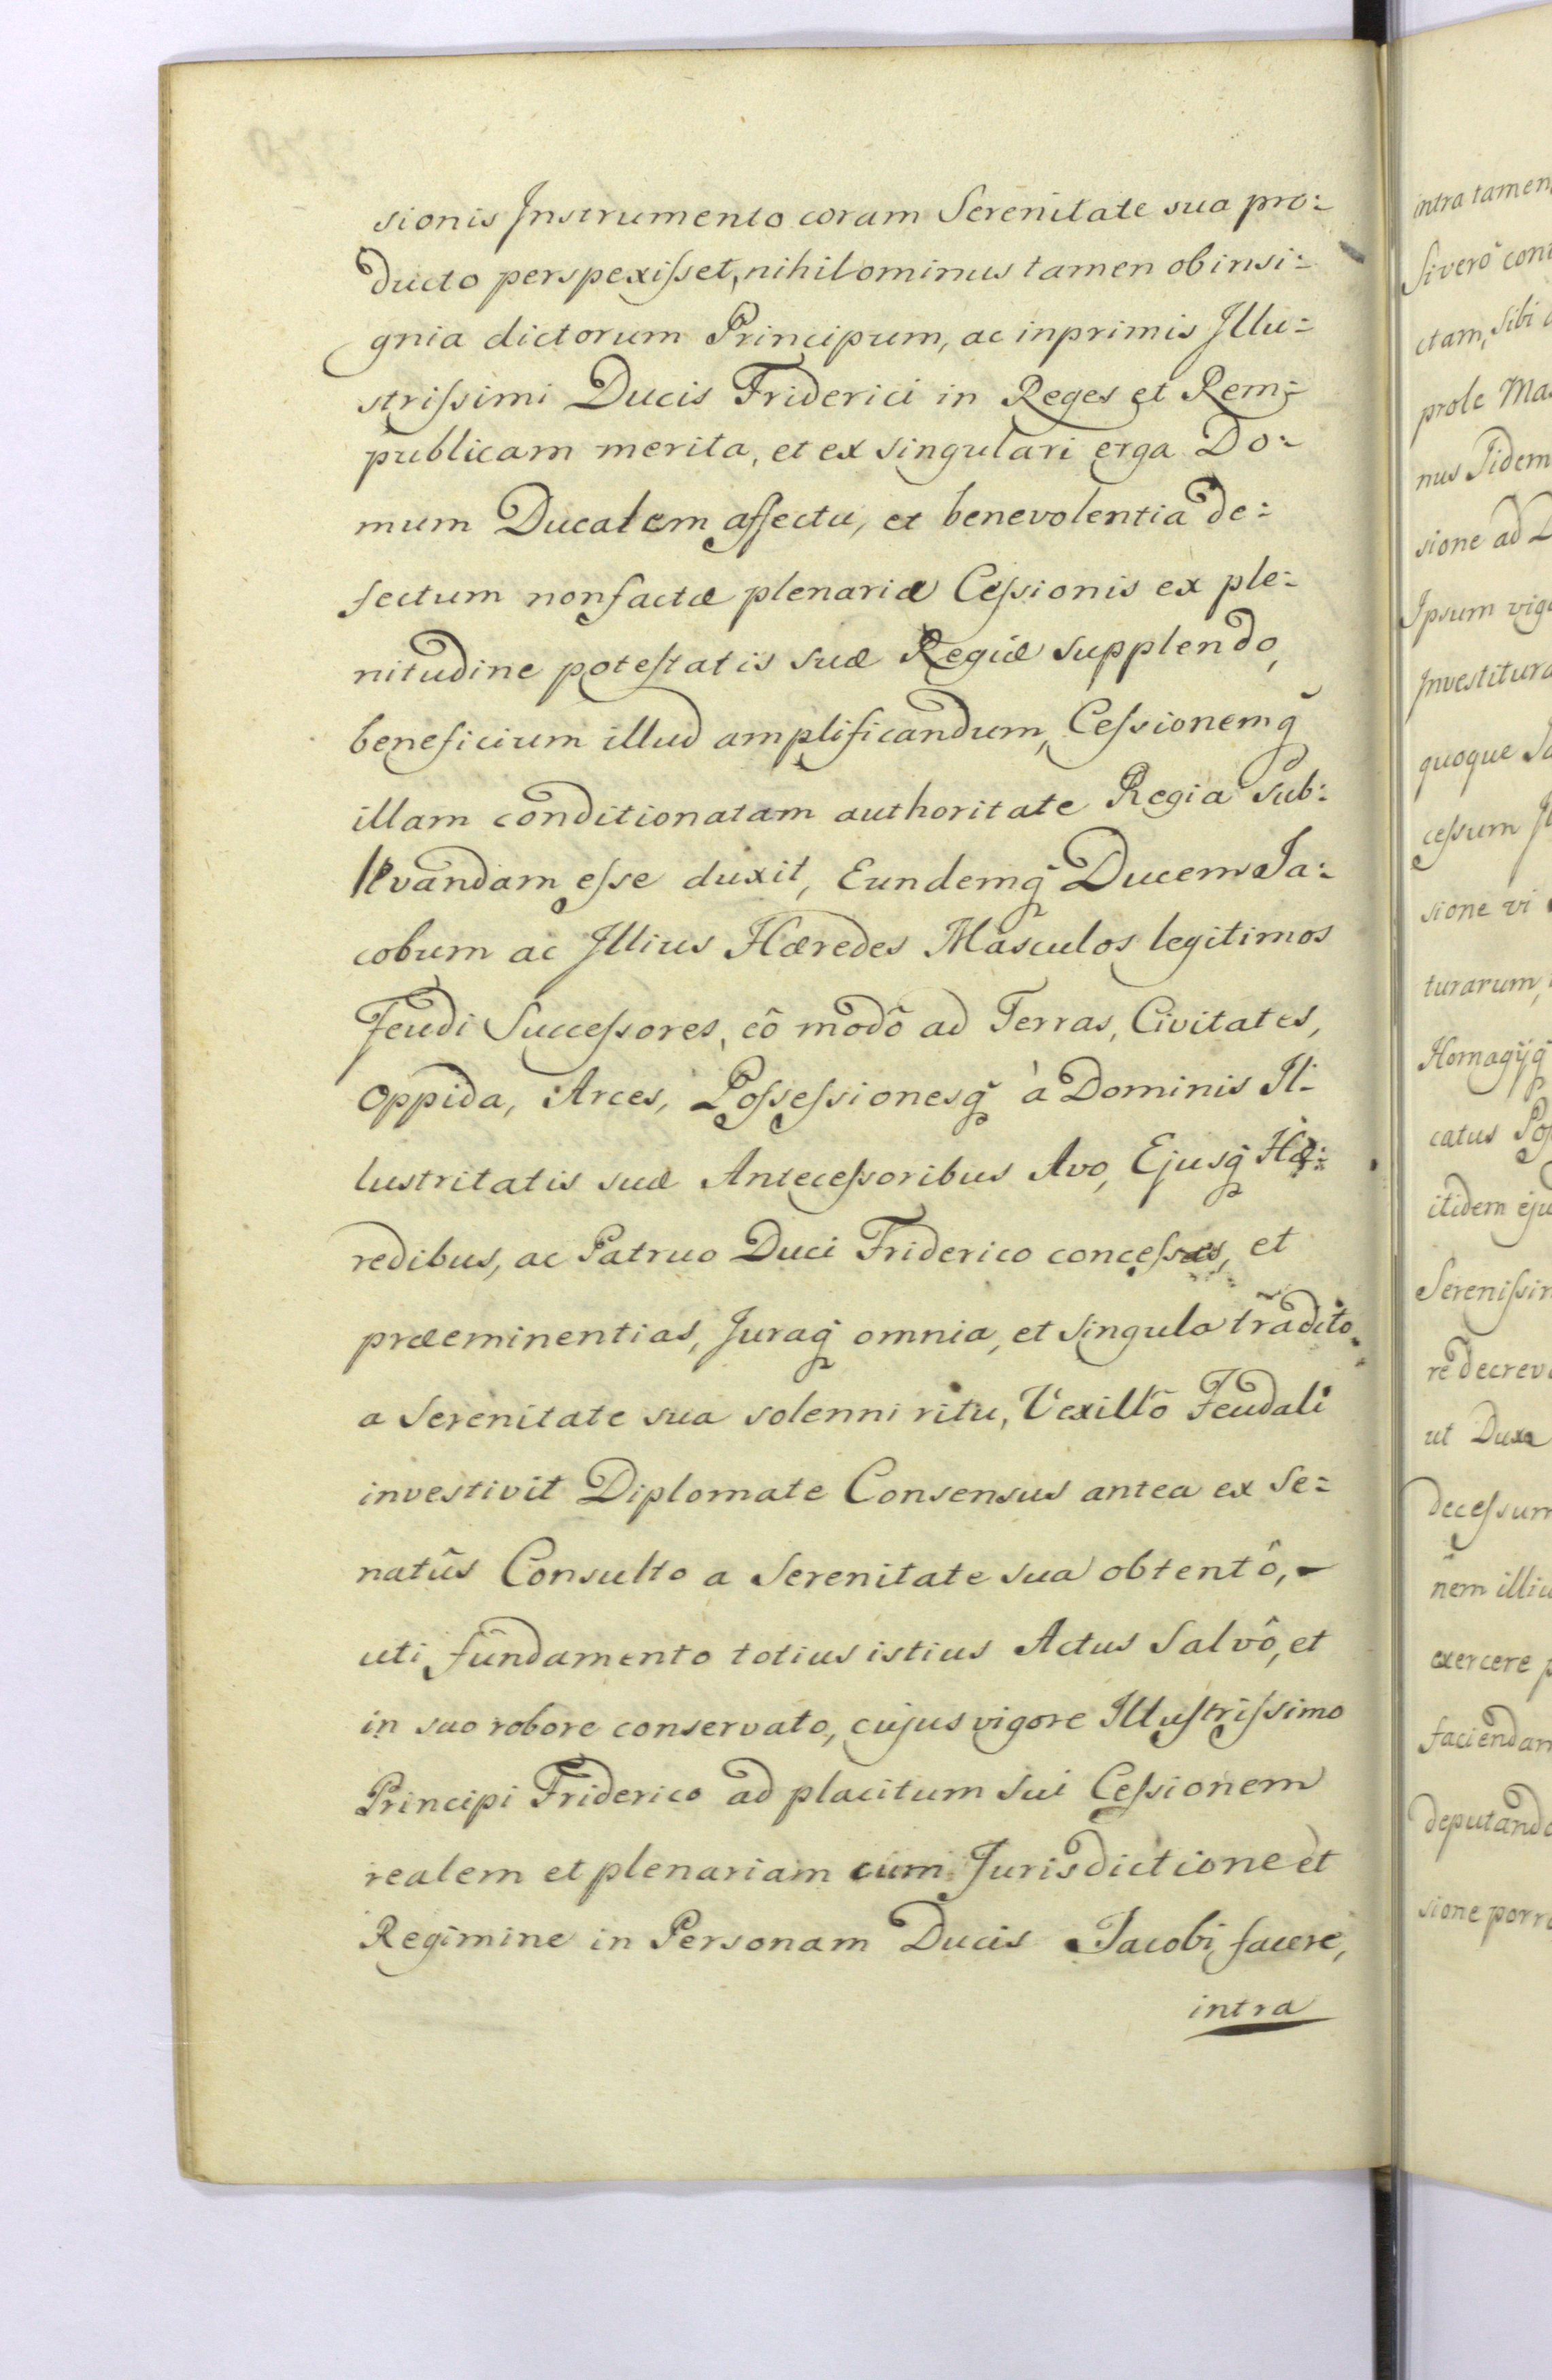 sionis Instrumento coram Serenitate sua pro:
ducto perspexiſset, nihilominus tamen ob insi:
gnia dictorum Principum, ac inprimis Illu:
striſsimi Ducis Friderici in Reges et Rem:
publicam merita, et ex singulari erga Do:
mum Ducalem affectu, et benevolentia de:
fectum non factæ plenariæ Ceſsionis ex ple:
nitudine poteſtatis suæ Regiæ supplendo,
beneficium illud amplificandum, Ceſsionemq̃
illam conditionatam authoritate Regia Sub:
levandam eſse duxit, Eundemq̃ Ducem Ja:
cobum ac Illius Hæredes Masculos legitimos
Feudi Succeſsores, eô modô ad Terras, Civitates,
Oppida, Arces, Poſseſsionesq̃ à Dominis Il:
lustritatis suæ Anteceſsoribus Avo, Ejusq̃ Hæ:
redibus, ac Patruo Duci Friderico conceſsas, et
præeminentias, Juraq̃ omnia, et singula tradito
a Serenitate sua solenni ritu, Vexillô Feudali
investivit Diplomate Consensus antea ex Se:
natûs Consulto a Serenitate sua obtentô, -
uti fundamento totius istius Actus Salvô, et
in suo robore conservato, cujus vigore Illuſtriſsimo
Principi Friderico ad placitum sui Ceſsionem
realem et plenariam cum Jurisdictione et
Regimine in Personam Ducis Jacobi facere,
intra
intra tamen
Si verô con
ctam, sibi
prole Ma
nus Fidem
sione ad D
Ipsum vig
Investitura
quoque
ceſsum
sione vi
turarum,
Homagijq̃
catus Poſ
itidem eju
Sereniſsi
re decrev
ut Dux
deceſsum
nem illiu
exercere p
faciendam
deputand
sione porro